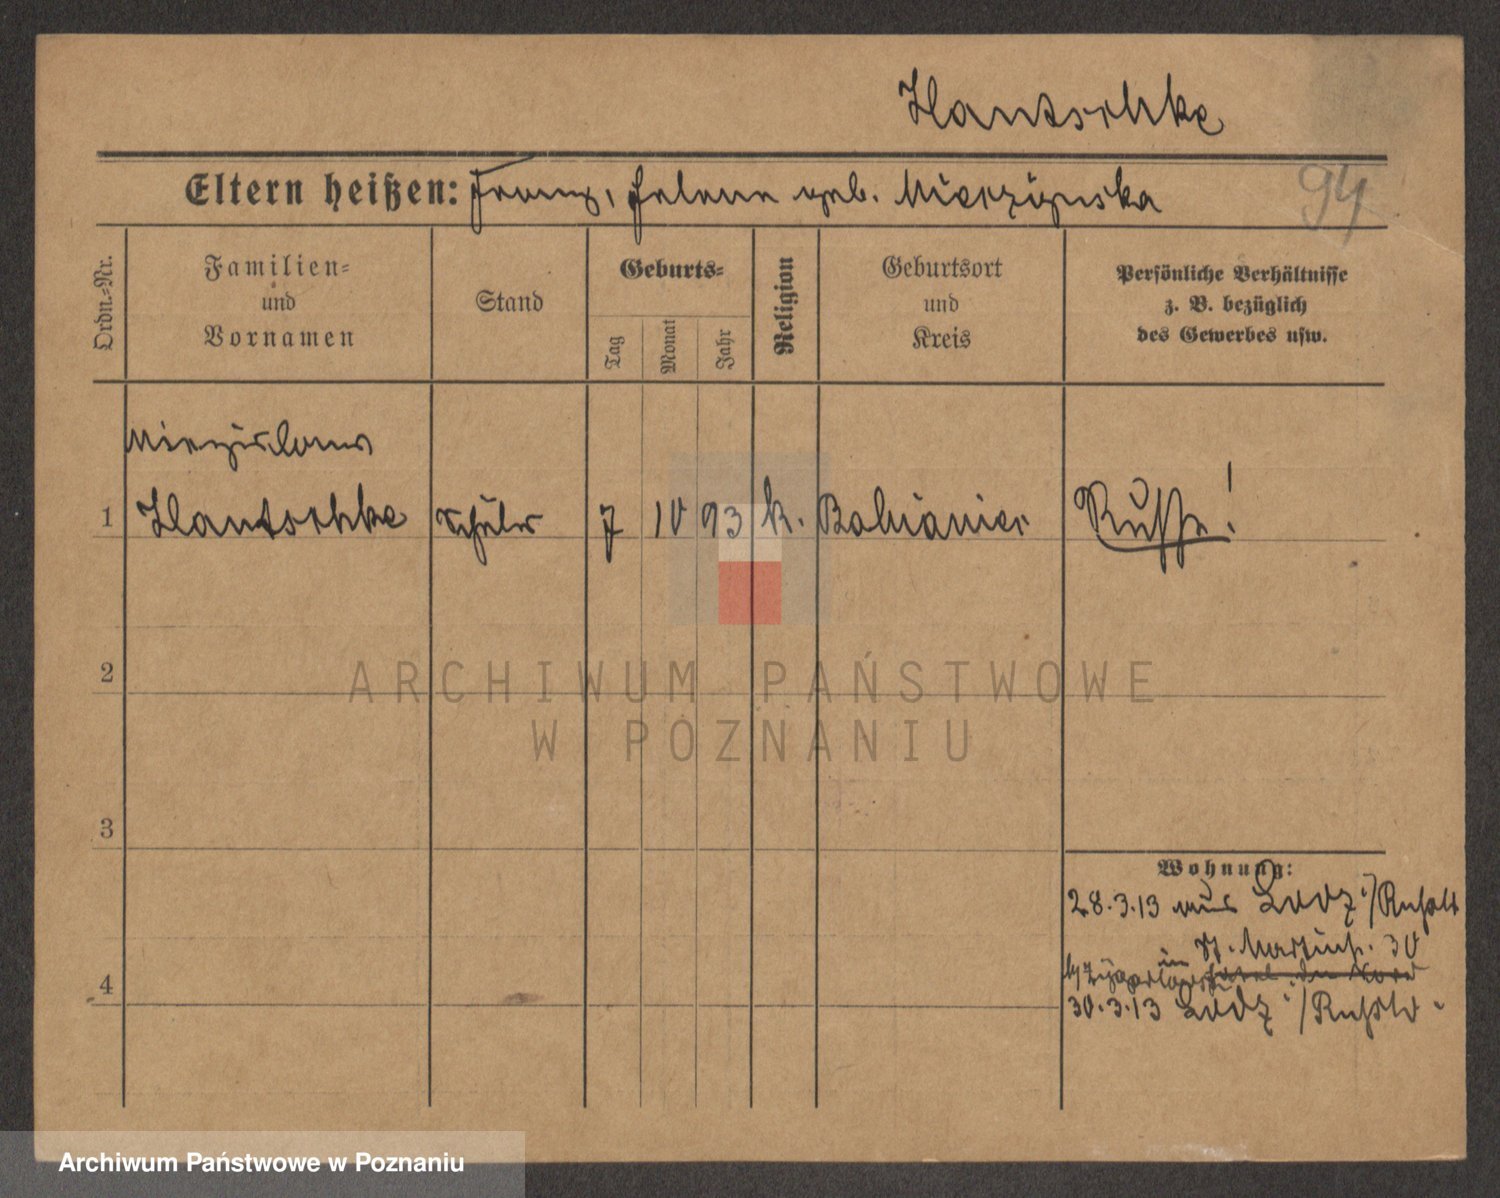 Hantschke
Eltern heißen: Franz, Helene geb. Mierzynska
94
Ordn.=Nr.
Familien=
und
Vornamen
Stand
Geburts=
Tag
Monat
Jahr
Religion
Geburtsort
und
Kreis
Persönliche Verhältnisse
z. B. bezüglich
des Gewerbes usw.
Miezislaus
1 Hantschke Schüler 7 10 93 k. Pabianice Russe!
2
ARCHIWUM PAŃSTWOWE
W POZNANIU
3
Wohnung:
28.3.13 aus Lodz i/Rußld
St. Martinstr. 30
in
4
30.3.13 Lodz i/Rußld.
Archiwum Państwowe w Poznaniu